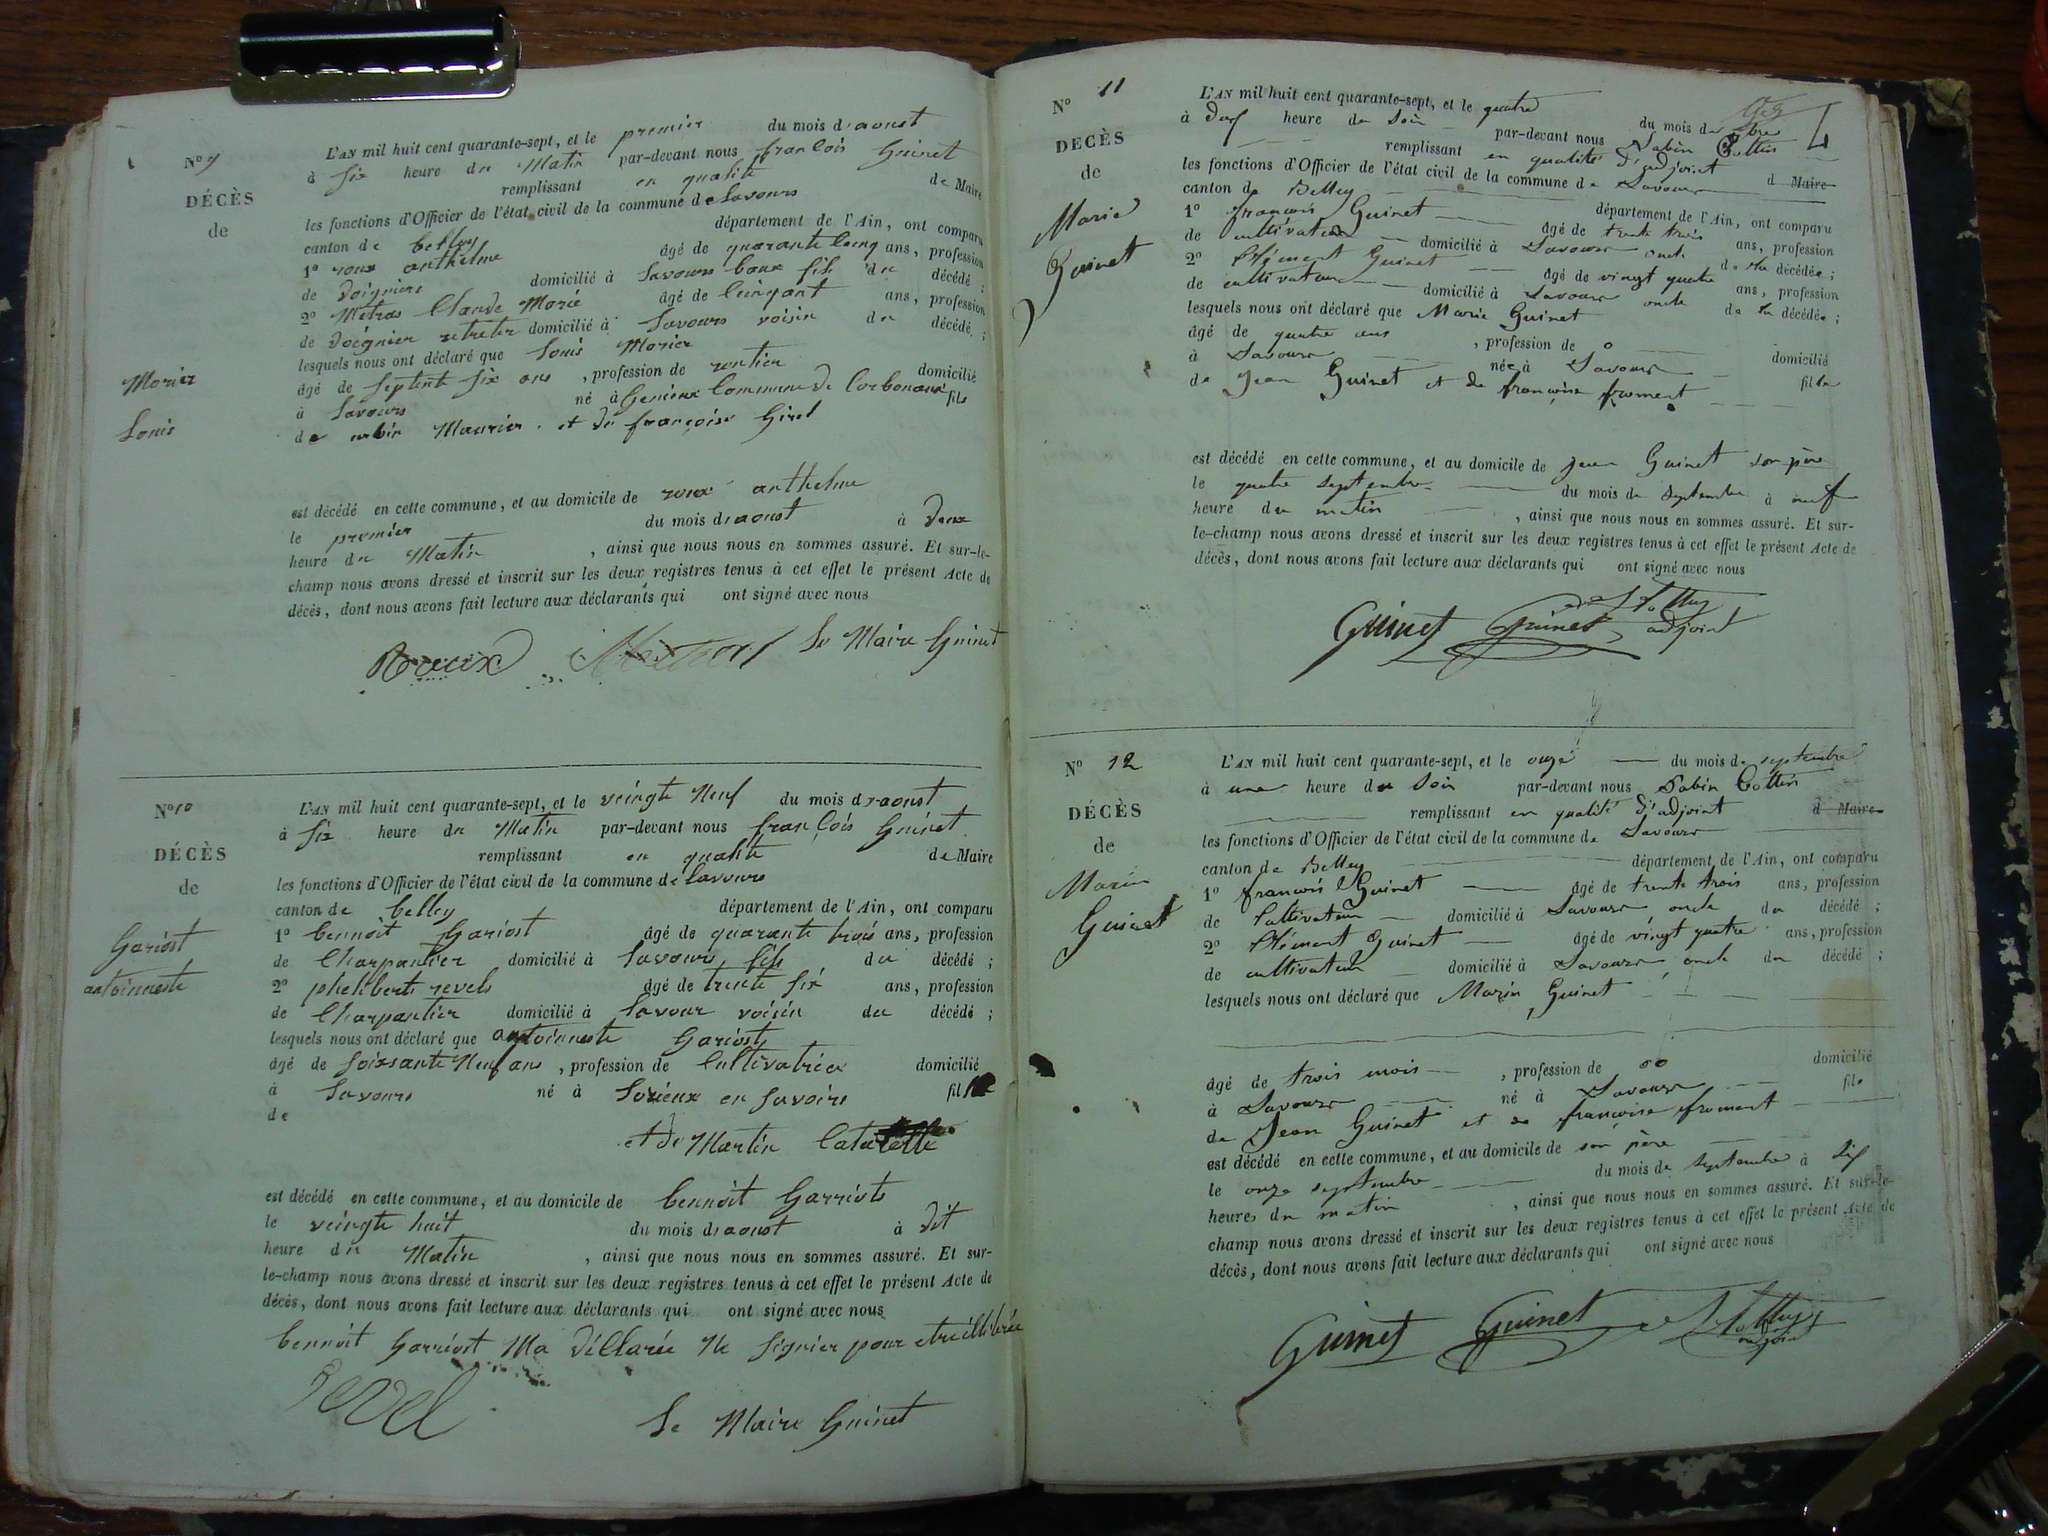 N° 9
DÉCÈS
de
Morier
Louis
L'AN mil huit cent quarante-sept, et le premier du mois d'aoust
à six heure du Matin par-devant nous françois Guinet
remplissant en qualité de Maire
les fonctions d'Officier de l'état civil de la commune de Savours
canton de belley département de l'Ain, ont comparu
1° roux anthelme âgé de quarante cinq ans, profession
de doignier domicilié à Savours beaux fils du décédé ;
2° Métras Claude Morie âgé de Cinqant ans, profession
de doignier retreter domicilié à Savours voisin du décédé ;
lesquels nous ont déclaré que Louis Morier
âgé de septente six ans , profession de rentier domicilié
à Savours né à Genieux Commune de Corbonod fils
de urbin Maurier et de françoise Girel
est décédé en cette commune, et au domicile de roux anthelme
le premier du mois d'aoust à deux
heure du Matin , ainsi que nous nous en sommes assuré. Et sur-le-
champ nous avons dressé et inscrit sur les deux registres tenus à cet effet le présent Acte de
décès, dont nous avons fait lecture aux déclarants qui ont signé avec nous
Roux Métras Le Maire Guinet
N° 10
DÉCÈS
de
Gariost
antoinneste
L'AN mil huit cent quarante-sept, et le veingte Neuf du mois d'aoust
à six heure du Matin par-devant nous françois Guinet
remplissant en qualite de Maire
les fonctions d'Officier de l'état civil de la commune de Savours
canton de belley département de l'Ain, ont comparu
1° bennoit Gariost âgé de quarante trois ans, profession
de Charpantier domicilié à Savours fils du décédé ;
2° philibert revels âgé de trente six ans, profession
de Charpantier domicilié à Savour voisin du décédé ;
lesquels nous ont déclaré que antoinneste Gariost
âgé de soixsante Neuf ans , profession de Cultivatrice domicilié
à Savours né à Lorieux en Savoire fille
de
et de Martin
est décédé en cette commune, et au domicile de bennoit Garriost
le veingte huit du mois d'aoust à dit
heure du Matin , ainsi que nous nous en sommes assuré. Et sur-
le-champ nous avons dressé et inscrit sur les deux registres tenus à cet effet le présent Acte de
décès, dont nous avons fait lecture aux déclarants qui ont signé avec nous
bennoit Garriost Ma déClarée Ne signier pour etreillitérée
revel
Le Maire Guinet
N° 11
DÉCÈS
de
Marie
Guinet
L'AN mil huit cent quarante-sept, et le quatre du mois de 7bre
à dix heure du soir par-devant nous Sabin Cottin
remplissant en qualité d'adjoint d Maire
les fonctions d'Officier de l'état civil de la commune de Savours
canton de Belley département de l'Ain, ont comparu
1° françois Guinet âgé de trente trois ans, profession
de cultivateur domicilié à Savours oncle de la décédée ;
2° Clément Guinet âgé de vingt quatre ans, profession
de cultivateur domicilié à Savours oncle de la décédée ;
lesquels nous ont déclaré que Marie Guinet
âgé de quatre ans , profession de domicilié
à Savours née à Savours fille
de Jean Guinet et de françoise froment
est décédé en cette commune, et au domicile de Jean Guinet son père
le quatre septembre du mois de septembre à neuf
heure du matin , ainsi que nous nous en sommes assuré. Et sur-
le-champ nous avons dressé et inscrit sur les deux registres tenus à cet effet le présent Acte de
décès, dont nous avons fait lecture aux déclarants qui ont signé avec nous
Guinet Guinet
adjoint
N° 12
DÉCÈS
de
Marin
Guinet
L'AN mil huit cent quarante-sept, et le onze du mois de septembre
à une heure du soir par-devant nous Sabin Cottin
remplissant en qualité d'adjoint d Maire
les fonctions d'Officier de l'état civil de la commune de Savours
canton de Belley département de l'Ain, ont comparu
1° françois Guinet âgé de trente trois ans, profession
de Cultivateur domicilié à Savours oncle du décédé ;
2° Clément Guinet âgé de vingt quatre ans, profession
de cultivateur domicilié à Savours oncle du décédé ;
lesquels nous ont déclaré que Marin Guinet
âgé de trois mois , profession de domicilié
à Savours né à Savours fils
de Jean Guinet et de françoise froment
est décédé en cette commune, et au domicile de son père
le onze septembre du mois de septembre à dix
heures du matin , ainsi que nous nous en sommes assuré. Et sur-le-
champ nous avons dressé et inscrit sur les deux registres tenus à cet effet le présent Acte de
décès, dont nous avons fait lecture aux déclarants qui ont signé avec nous
Guinet Guinet
adjoint